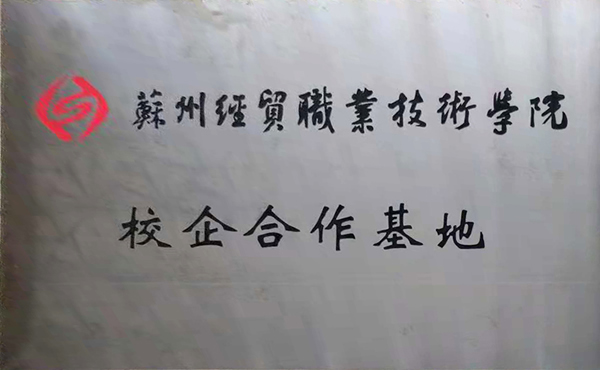 蘇州經貿職業技術學院
校企合作基地